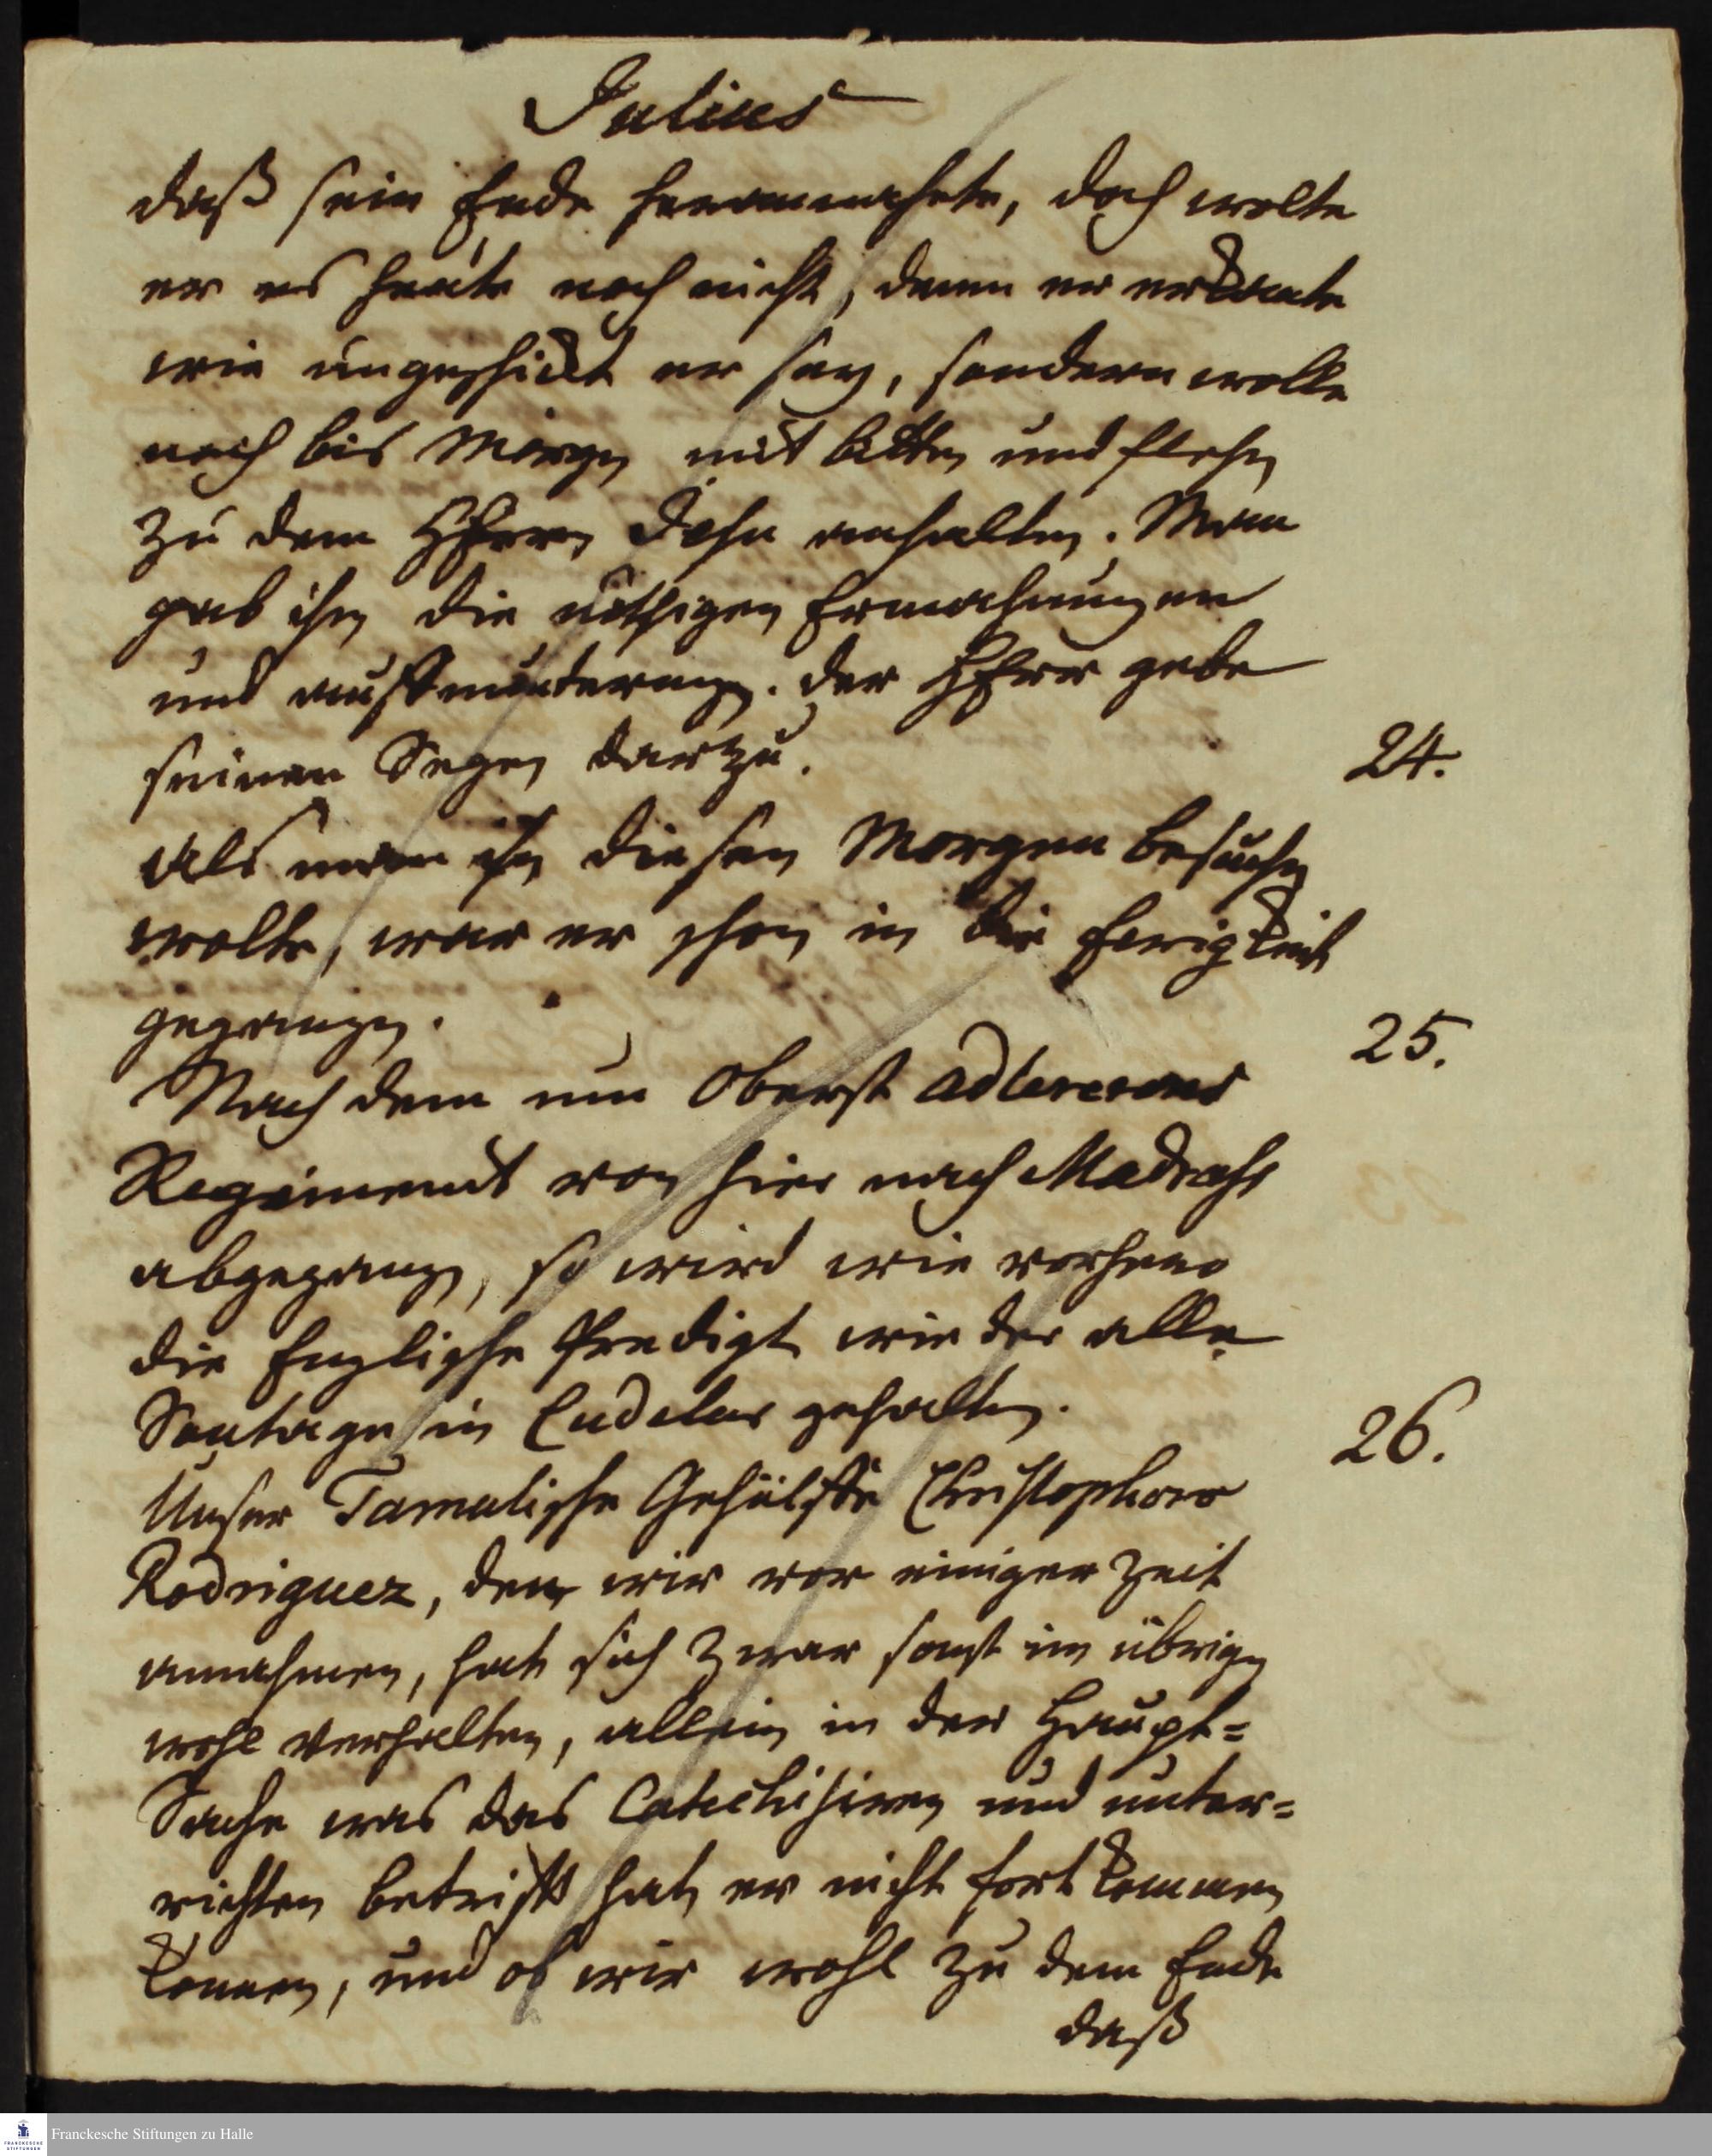 Julius
daß sein Ende herannahete, doch wolte
er es heute noch nicht, denn er erkante
wie ungeschickt er sey, sondern wolle
noch bis Morgen mit bitten und flehen
zu dem HErrn Jesu anhalten. Man
gab ihm die nöthigen Ermahnungen
und aufmunterungen. der HErr gebe
seinen Segen darzu.
24.
als man ihn diesen Morgen besuchen
wolte, war er schon in die Ewigkeit
gegangen.
25.
Nach dem nun Oberst
Regiment von hier nach Madrass
abgegangen, so wird wie vorhero
die Englische Predigt wieder alle
Sontage in Cudelur gehalten.
26.
Unser Tamulische Gehülffe Christophoro
Rodriguez, den wir vor einiger Zeit
annahmen, hat sich zwar sonst im übrigen
wohl verhalten, allein in der Haupt=
Sache was das Catechisiren und unter=
richten betrifft hat er nicht fort kommen
konnen, und ob wir wohl zu dem Ende
daß
Franckesche Stiftungen zu Halle
FRANCKESCHE
STIFTUNGEN